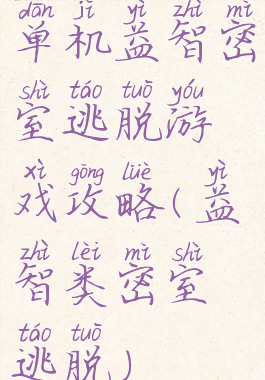 dān jī yì zhì mì
单机益智密
shì táo tuō yóu
室逃脱游
xì gōng lüè yì
戏攻略(益
zhì lèi mì shì
智类密室
táo tuō
逃脱)